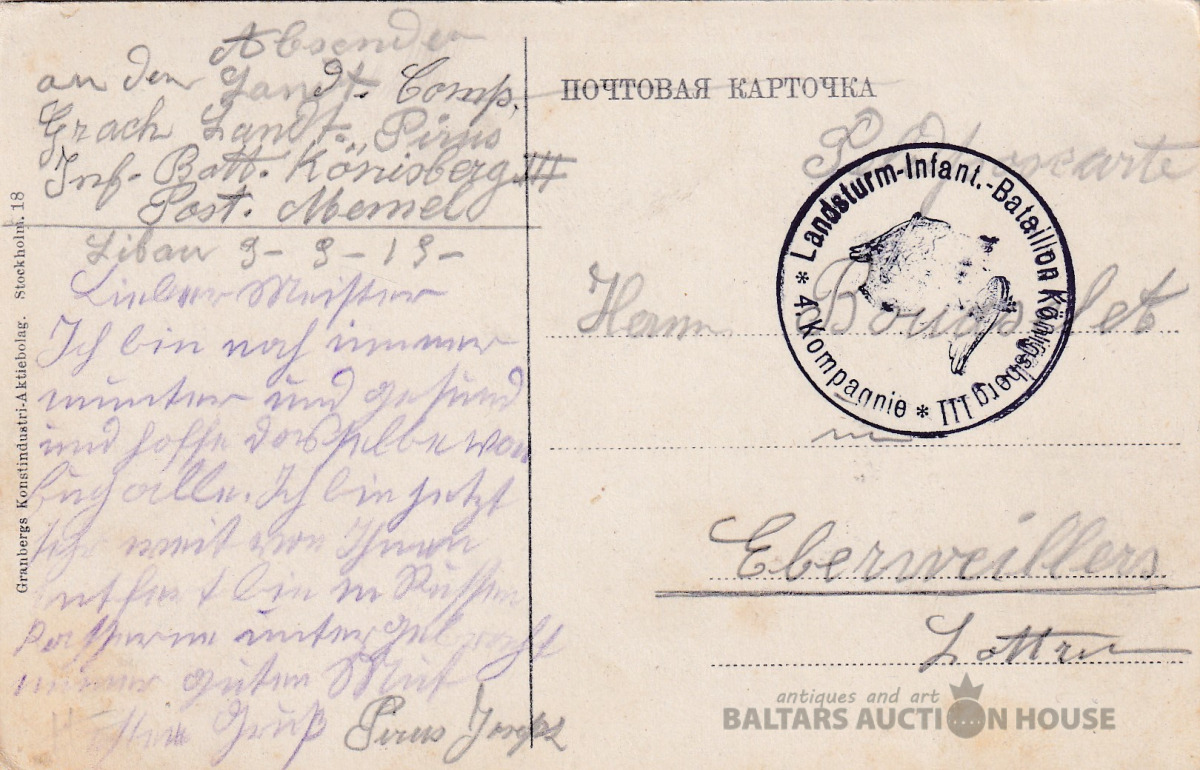 Absender
an den Landt. Comp.
Landt. „Pirus
Inf- Batt. Königsberg III
Post. Memel
Libau 9-9-15-
Lieber Meister
Ich bin noch immer
munter und gesund
und hoffe dasselbe von
Euch alle. Ich bin jetzt
sehr weit von Ihnen
entfernt bin in
Kasserne untergebracht
immer guten Mut
Gruß Pirus Joseph
Granbergs Konstindustri-Aktiebolag. Stockholm. 18
ПОЧТОВАЯ КАРТОЧКА
Herrn
in
Eberweillers
* Landsturm-Infant.-Bataillon Königsberg III * 4. Kompagnie
antiques and art
BALTARS AUCTION HOUSE